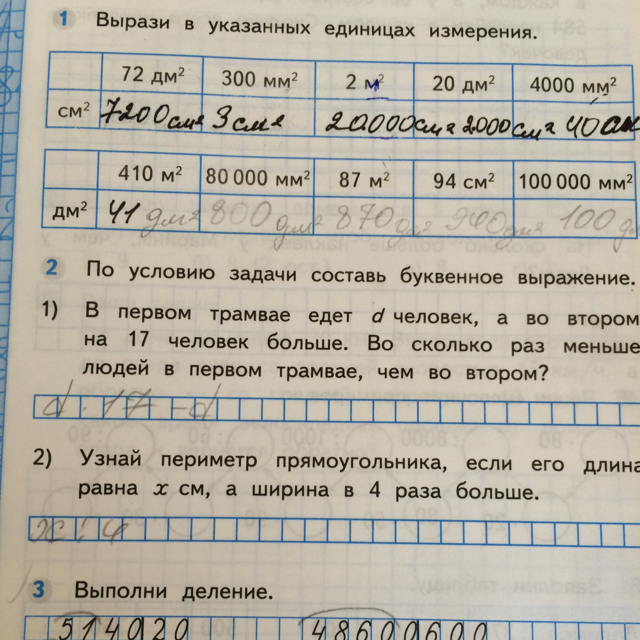 1 Вырази в указанных единицах измерения.
72 дм² 300 мм² 2 м² 20 дм² 4000 мм²
см² 7200 см² 3 см² 20000 см² 2000 см² 40 см
410 м² 80 000 мм² 87 м² 94 см² 100 000 мм²
дм² 41 дм² 800 дм² 870 дм² 940 дм² 100 д
2 По условию задачи составь буквенное выражение.
1) В первом трамвае едет d человек, а во втором
на 17 человек больше. Во сколько раз меньше
людей в первом трамвае, чем во втором?
d . 17 - d
2) Узнай периметр прямоугольника, если его длина
равна x см, а ширина в 4 раза больше.
x : 4
3 Выполни деление.
514020 48600600